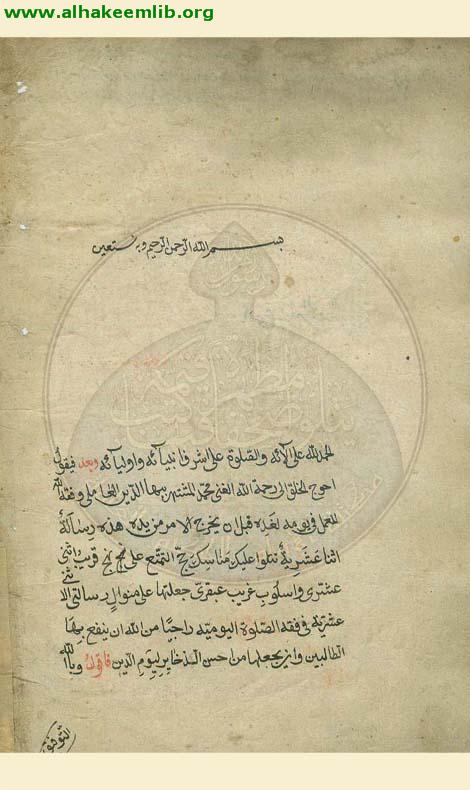 www.alhakeemlib.org
بسم الله الرحمن الرحيم وبه نستعين
الحمد لله على آلائه والصلوة على اشرف انبيآئه واوليآئه وبعد فيقول
احوج الخلق الى رحمة الله الغنى محمد المشتهر ببهاء الدين العاملى وفقه الله
للعمل فى يومه لغده قبل ان يخرج الامر من يده هذه رسالة
اثنا عشرية تتلوا عليك مناسك حج التمتع على نهج قريب
عشترى واسلوب غريب عبقرى جعلتها على منوال رسالتى الا
عشرية فى فقه الصلوة اليومية راجيا من الله ان ينفع بها
الطالبين وان يجعلها من احسن الذخاير ليوم الدين فاقول وبالله
التوفيق